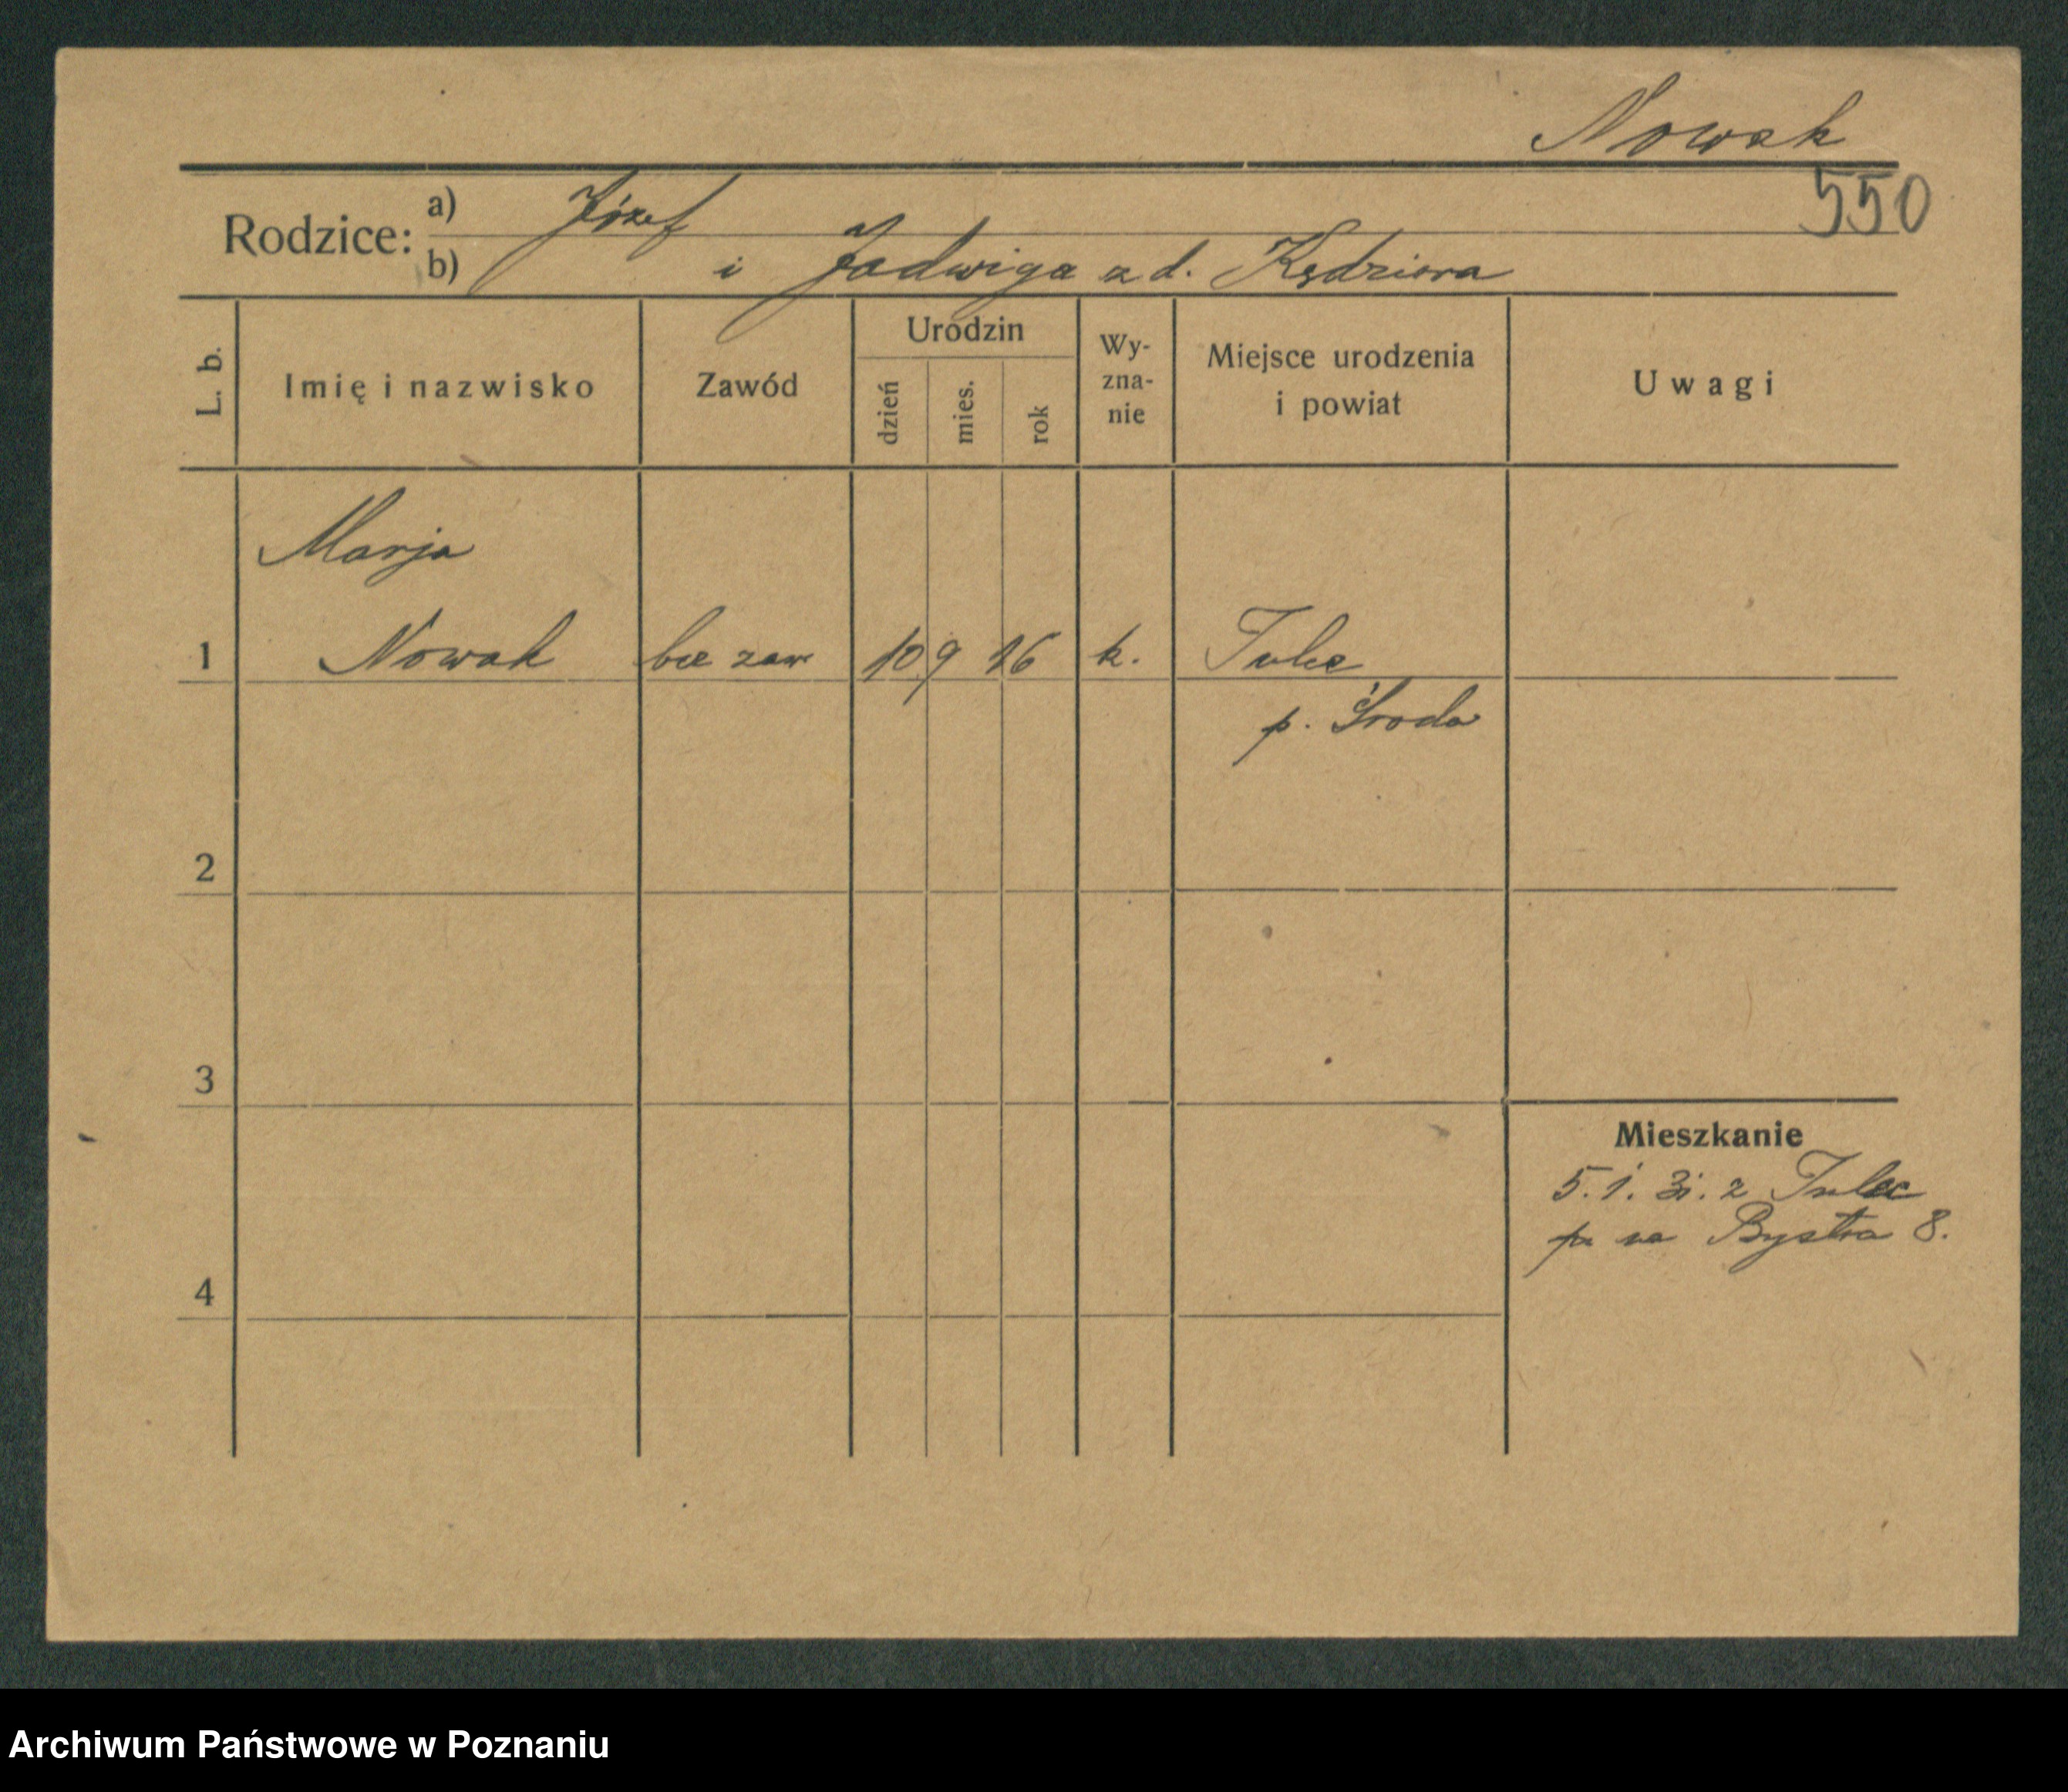 Nowak
550
Rodzice: a) Józef
b) i Jadwiga z d. Kędziora
L. b.
Imię i nazwisko
Zawód
Urodzin
dzień
mies.
rok
Wy-
zna-
nie
Miejsce urodzenia
i powiat
Uwagi
Marja
1 Nowak bez zaw 10 9 16 k. Tulce
p. Środa
2
3
Mieszkanie
5. 1. 31. z Tulec
na Bystra 8.
4
Archiwum Państwowe w Poznaniu